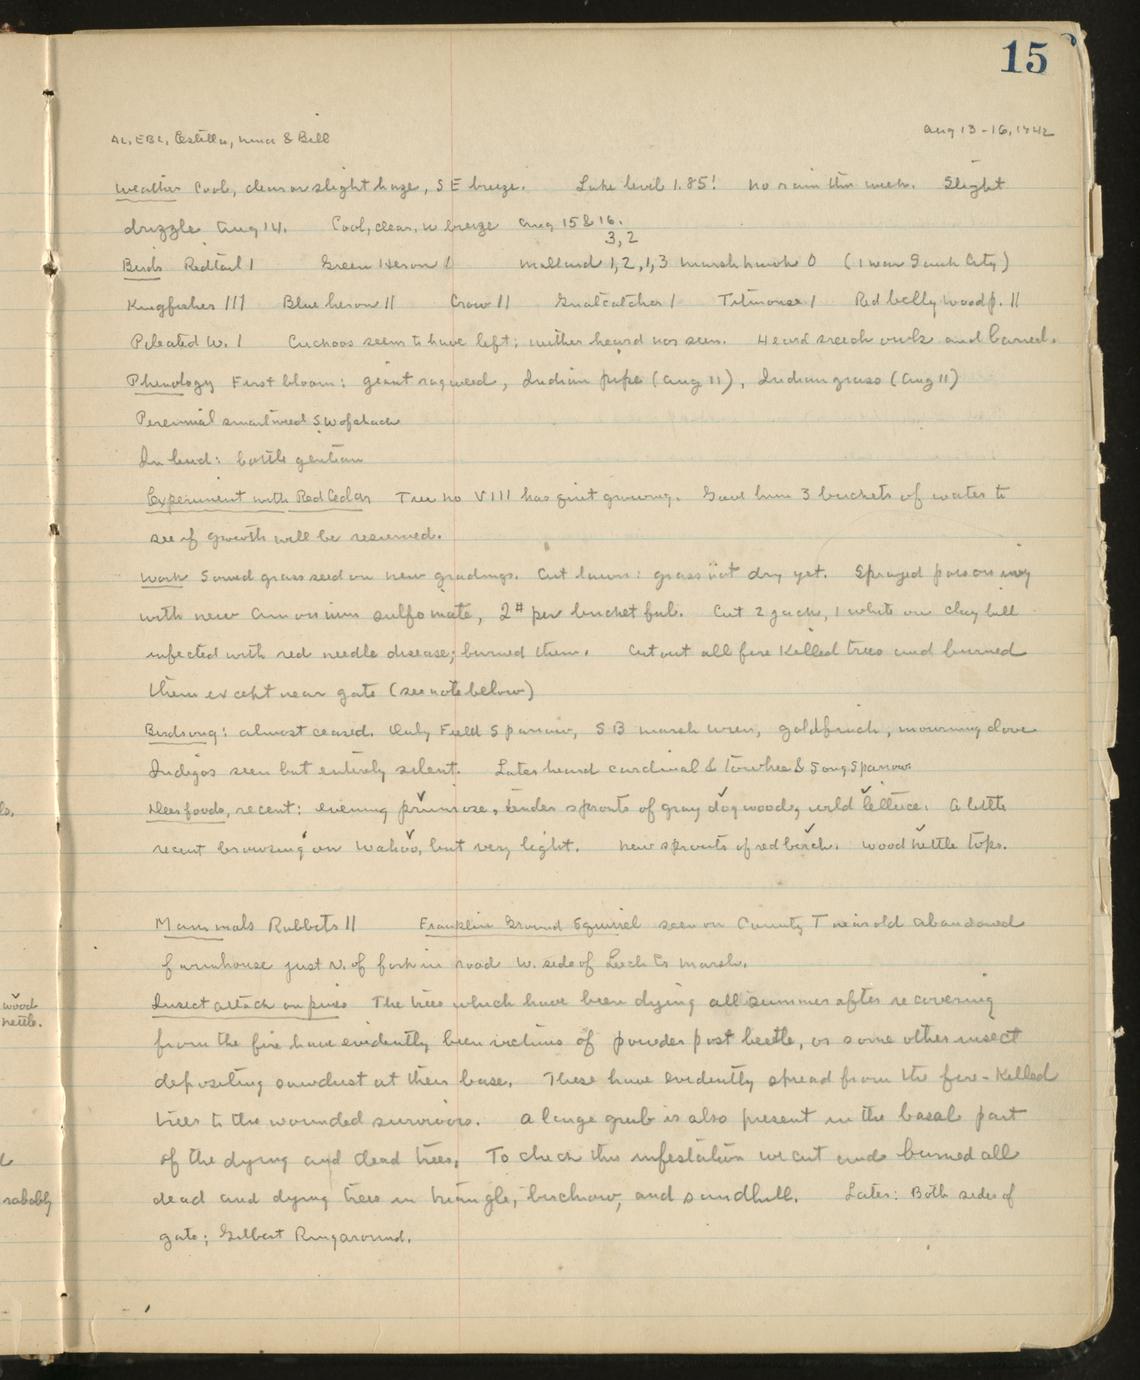 15
AL, EBL, Estella, Nina & Bill Aug 13-16, 1942
Weather Cool, clear or slight haze, SE breeze. Lake level 1.85! No rain this week. Slight
drizzle Aug 14. Cool, clear, N breeze Aug 15 & 16.
3, 2
Birds Redtail 1 Green Heron 1 Mallard 1, 2, 1, 3 Marsh hawk 0 (1 near Sauk City)
Kingfisher 111 Blue heron 11 Crow 11 Gnatcatcher 1 Titmouse 1 Red belly woodp. 11
Pileated W. 1 Cuckoos seem to have left; neither heard nor seen. Heard screech owls and barred.
Phenology First bloom: giant ragweed, Indian pipe (Aug 11), Indian grass (Aug 11)
Perennial smartweed SW of shack
In bud: bottle gentian
Experiment with Red Cedar Tree no VIII has quit growing. Gave him 3 buckets of water to
see if growth will be resumed.
Work Sowed grass seed on new gradings. Cut lawn: grass not dry yet. Sprayed poison ivy
with new ammonium sulfomate, 2# per bucket full. Cut 2 jacks, 1 white on clay hill
infected with red needle disease; burned them. Cut out all fire killed trees and burned
them except near gate (see note below)
Birdsong: almost ceased. Only Field Sparrow, SB marsh wren, goldfinch, mourning dove
Indigos seen but entirely silent. Later heard cardinal & Towhee & Song Sparrow.
Deer foods, recent: evening primrose, tender sprouts of gray dogwood, wild lettuce. A little
recent browsing on wahoo, but very light. New sprouts of red birch. Wood nettle tops.
Mammals Rabbits 11 Franklin Ground Squirrel seen on County T near old abandoned
farmhouse just N. of fork in road W. side of Marsh.
Insect attack on pines The trees which have been dying all summer after recovering
from the fire have evidently been victims of powder post beetle, or some other insect
depositing sawdust at their base. These have evidently spread from the fire-killed
trees to the wounded survivors. A large grub is also present in the basal part
of the dying and dead trees. To check this infestation we cut and burned all
dead and dying trees in triangle, birchrow, and sandhill. Later: Both sides of
gate; Gilbert Ringaround.
wood
nettle.